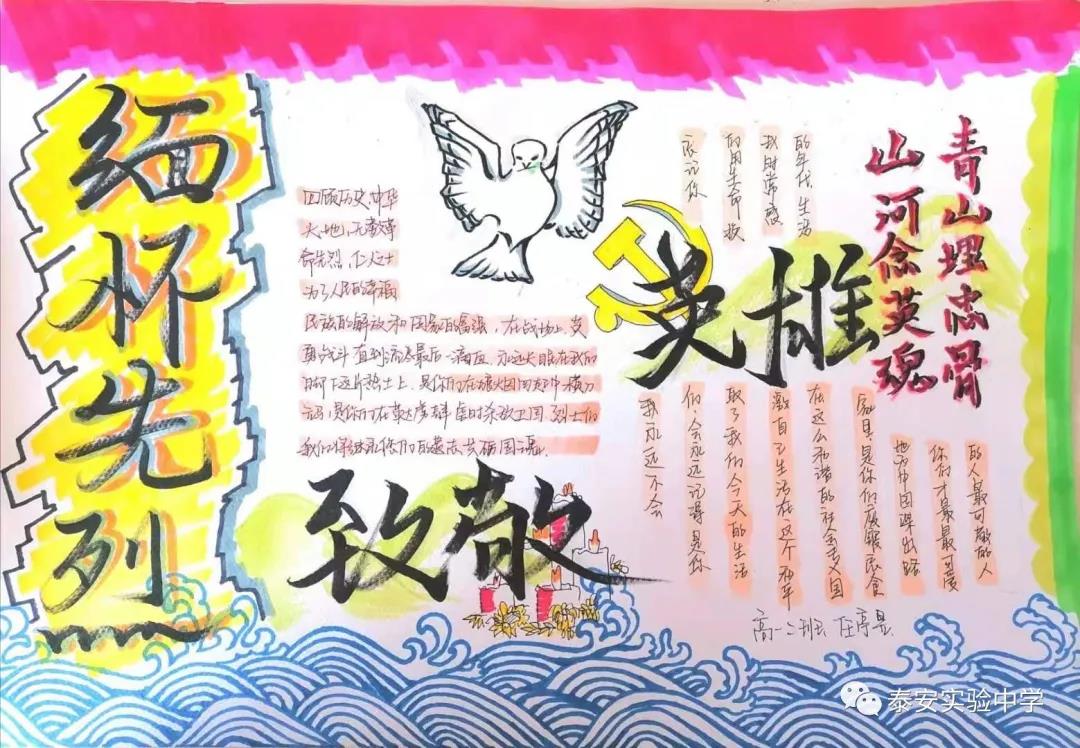 缅怀先烈
回顾历史，中华
大地，无数革
命先烈，仁人志士
为了人民的幸福
民族的解放和国家的富强，在战场上，英
勇战斗直到流尽最后一滴血，永远长眠在我的
脚下这片热土上，是你们在硝烟四起中横刀
立马，是你们在
烈士们
我们将继承您们的遗志
致敬
英雄
青山埋忠骨
山河念英魂
的年代，生活
我时常感
的用生命
忘记你
的人最可敬的人
你们才是最最可爱
她为中国谋出路
是你们
在这么和谐的社会主义国
激自己生活在这个和平
取了我们今天的生活
们，会永远记得是你
我永远不会
高一二班
泰安实验中学